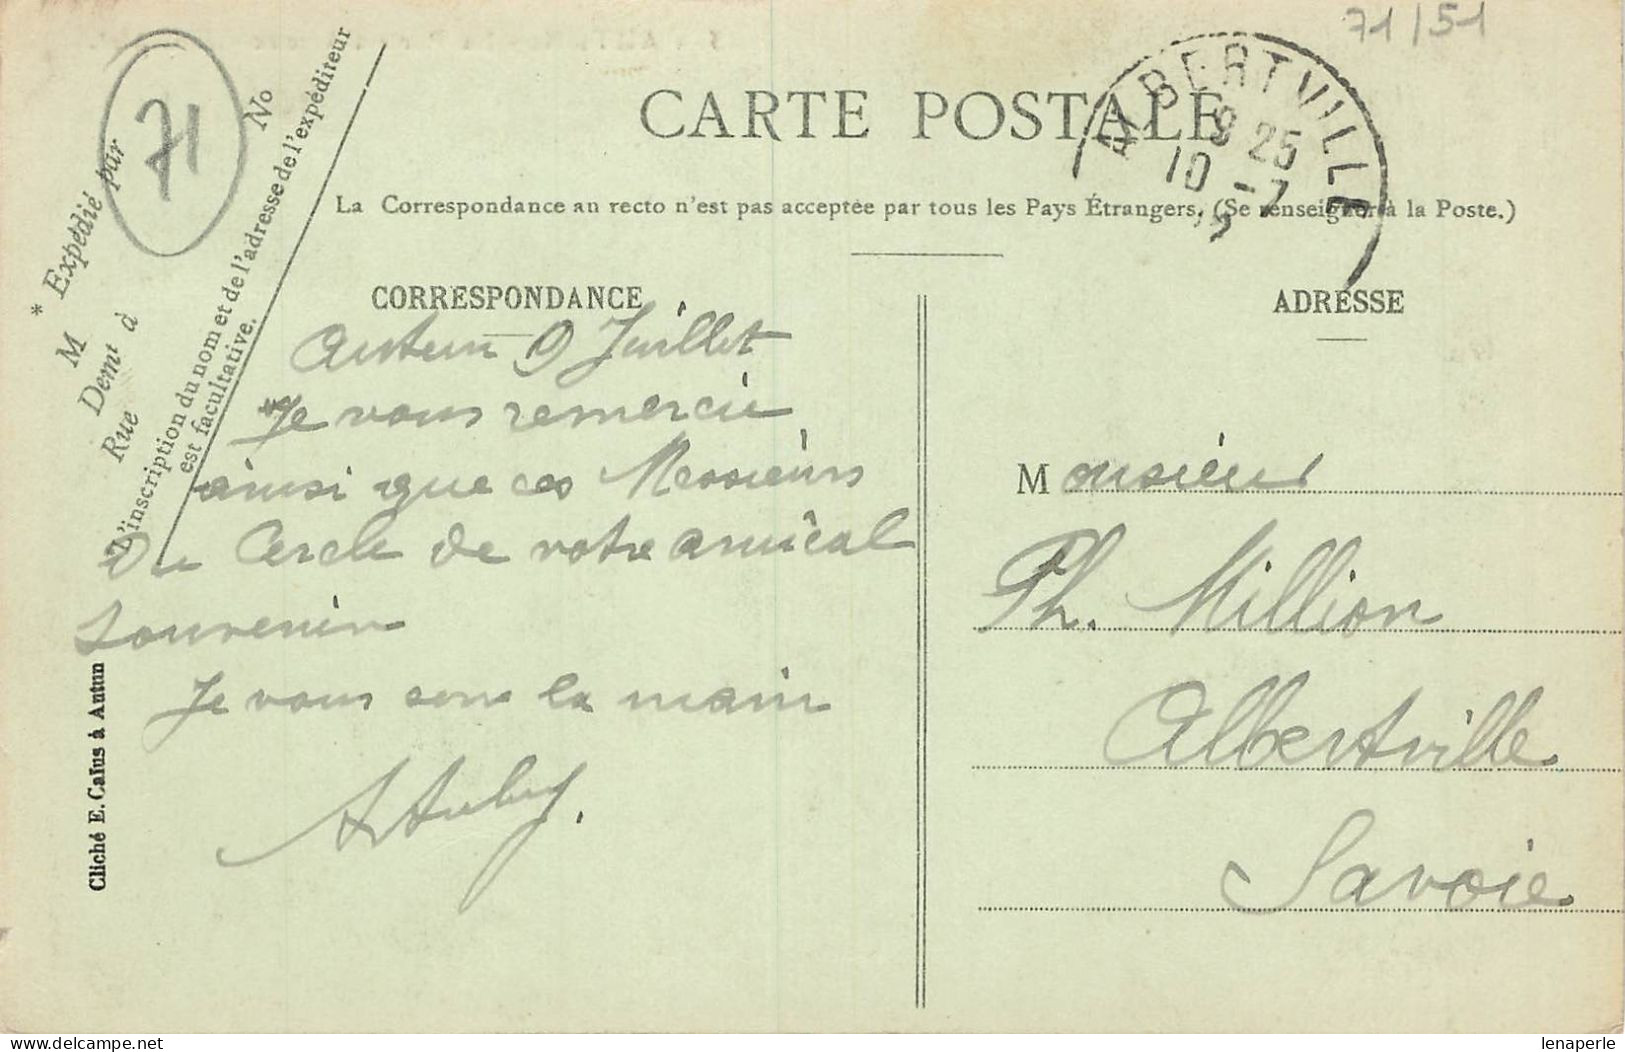 71/51
71
* Expédié par
M
Demt à
Rue
No
L'inscription du nom et de l'adresse de l'expéditeur
est facultative.
CARTE POSTALE
ALBERTVILLE
9 25
10 -7
La Correspondance au recto n'est pas acceptée par tous les Pays Étrangers. (Se renseigner à la Poste.)
CORRESPONDANCE
Autun 9 Juillet
Je vous remercie
ainsi que ces Messieurs
Du Cercle de votre amical
Souvenir
Je vous serre la main
Cliché E. Caius à Autun
ADRESSE
Monsieur
Ph. Million
Albertville
Savoie
delcampe.net
lenaperle